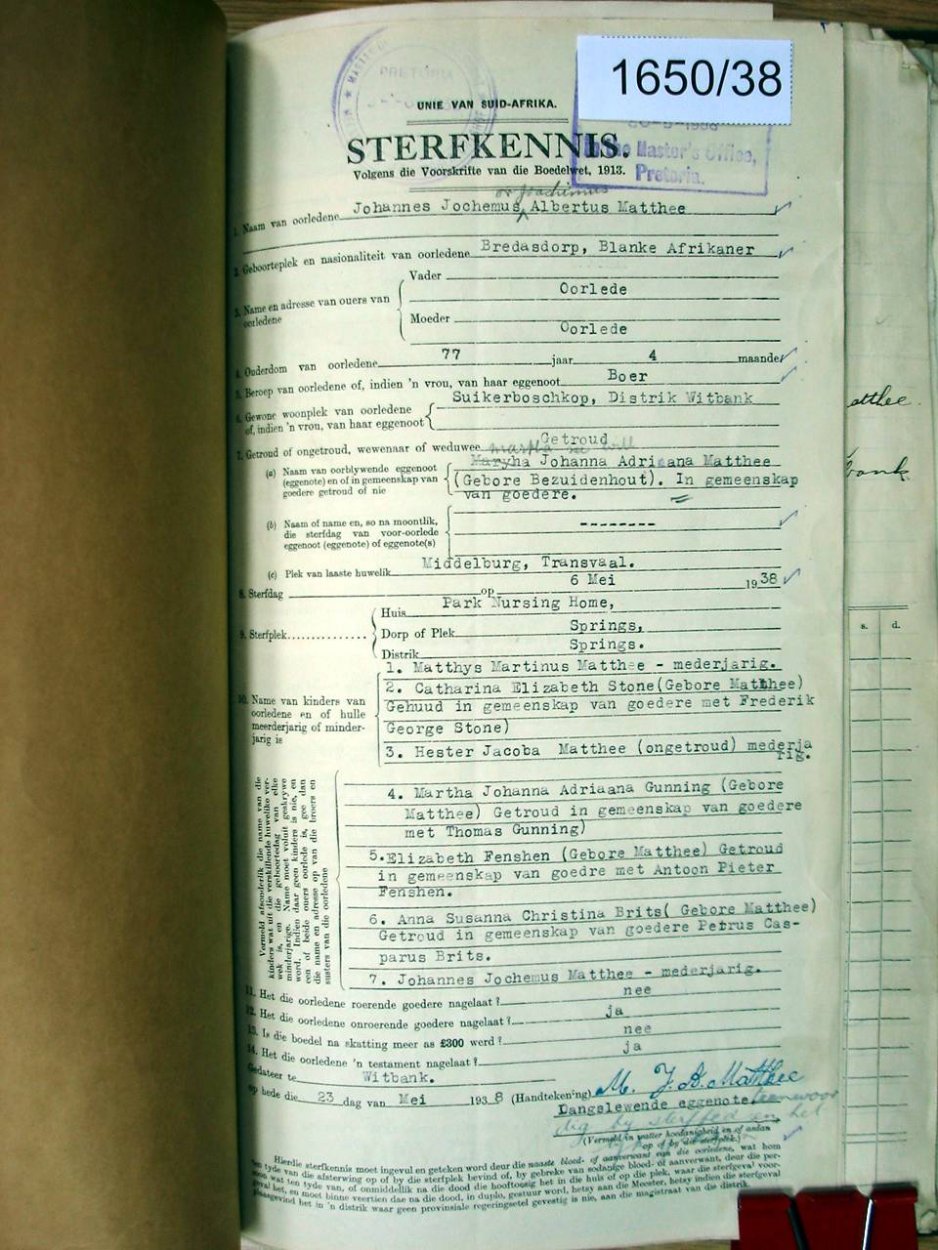 1650/38
PRETORIA
UNIE VAN SUID-AFRIKA.
to the Master's Office,
Pretoria.
STERFKENNIS.
Volgens die Voorskrifte van die Boedelwet, 1913.
or Joachemus
1. Naam van oorledene Johannes Jochemus Albertus Matthee
2. Geboorteplek en nasionaliteit van oorledene Bredasdorp, Blanke Afrikaner
3. Name en adresse van ouers van oorledene
Vader Oorlede
Moeder Oorlede
4. Ouderdom van oorledene 77 jaar 4 maande
5. Beroep van oorledene of, indien 'n vrou, van haar eggenoot Boer
6. Gewone woonplek van oorledene of, indien 'n vrou, van haar eggenoot
Suikerboschkop, Distrik Witbank
7. Getroud of ongetroud, wewenaar of weduwee Getroud
martha see will
(a) Naam van oorblywende eggenoot
(eggenote) en of in gemeenskap van
goedere getroud of nie
Maryha Johanna Adriaana Matthee
(Gebore Bezuidenhout). In gemeenskap
van goedere.
(b) Naam of name en, so na moontlik,
die sterfdag van voor-oorlede
eggenoot (eggenote) of eggenote(s)
--------
(c) Plek van laaste huwelik Middelburg, Transvaal.
8. Sterfdag op 6 Mei 1938
9. Sterfplek
Huis Park Nursing Home,
Dorp of Plek Springs,
Distrik Springs.
10. Name van kinders van
oorledene en of hulle
meerderjarig of minder-
jarig is
1. Matthys Martinus Matthee - mederjarig.
2. Catharina Elizabeth Stone(Gebore Matthee)
Gehuud in gemeenskap van goedere met Frederik
George Stone)
3. Hester Jacoba Matthee (ongetroud) mederja
rig.
Vermeld afsonderlik die name van die
kinders wat uit die verskillende huwelike ver-
wek is, en die geboortedag van elke
minderjarige. Name moet voluit geskrywe
word. Indien daar geen kinders is nie, en
een of beide ouers oorlede is, gee dan
die name en adresse op van die broers en
susters van die oorledene
4. Martha Johanna Adriaana Gunning (Gebore
Matthee) Getroud in gemeenskap van goedere
met Thomas Gunning)
5.Elizabeth Fenshen (Gebore Matthee) Getroud
in gemeenskap van goedre met Antoon Pieter
Fenshen.
6. Anna Susanna Christina Brits( Gebore Matthee)
Getroud in gemeenskap van goedere Petrus Cas-
parus Brits.
7. Johannes Jochemus Matthee - mederjarig.
11. Het die oorledene roerende goedere nagelaat? nee
12. Het die oorledene onroerende goedere nagelaat? ja
13. Is die boedel na skatting meer as £300 werd? nee
14. Het die oorledene 'n testament nagelaat? ja
Gedateer te Witbank.
op hede die 23 dag van Mei 1938 (Handtekening) M. J. A. Matthee
Langslewende eggenote teenwoor
dig by sterfbed en het
(Vermeld in watter hoedanigheid en of antan
op of by die sterfplek.)
Hierdie sterfkennis moet ingevul en geteken word deur die naaste bloed- of aanverwant van die oorledene, wat hom
ten tyde van die afsterwing op of by die sterfplek bevind of, by gebreke van sodanige bloed- of aanverwant, deur die per-
soon wat ten tyde van, of onmiddellik na die dood die hooftoesig het in die huis of op die plek, waar die sterfgeval voor-
geval het, en moet binne veertien dae na die dood, in duplo, gestuur word, hetsy aan die Meester, hetsy indien die sterfgeval
plaasgevind het in 'n distrik waar geen provinsiale regeringsetel gevestig is nie, aan die magistraat van die distrik.
atthee
bank
s. d.